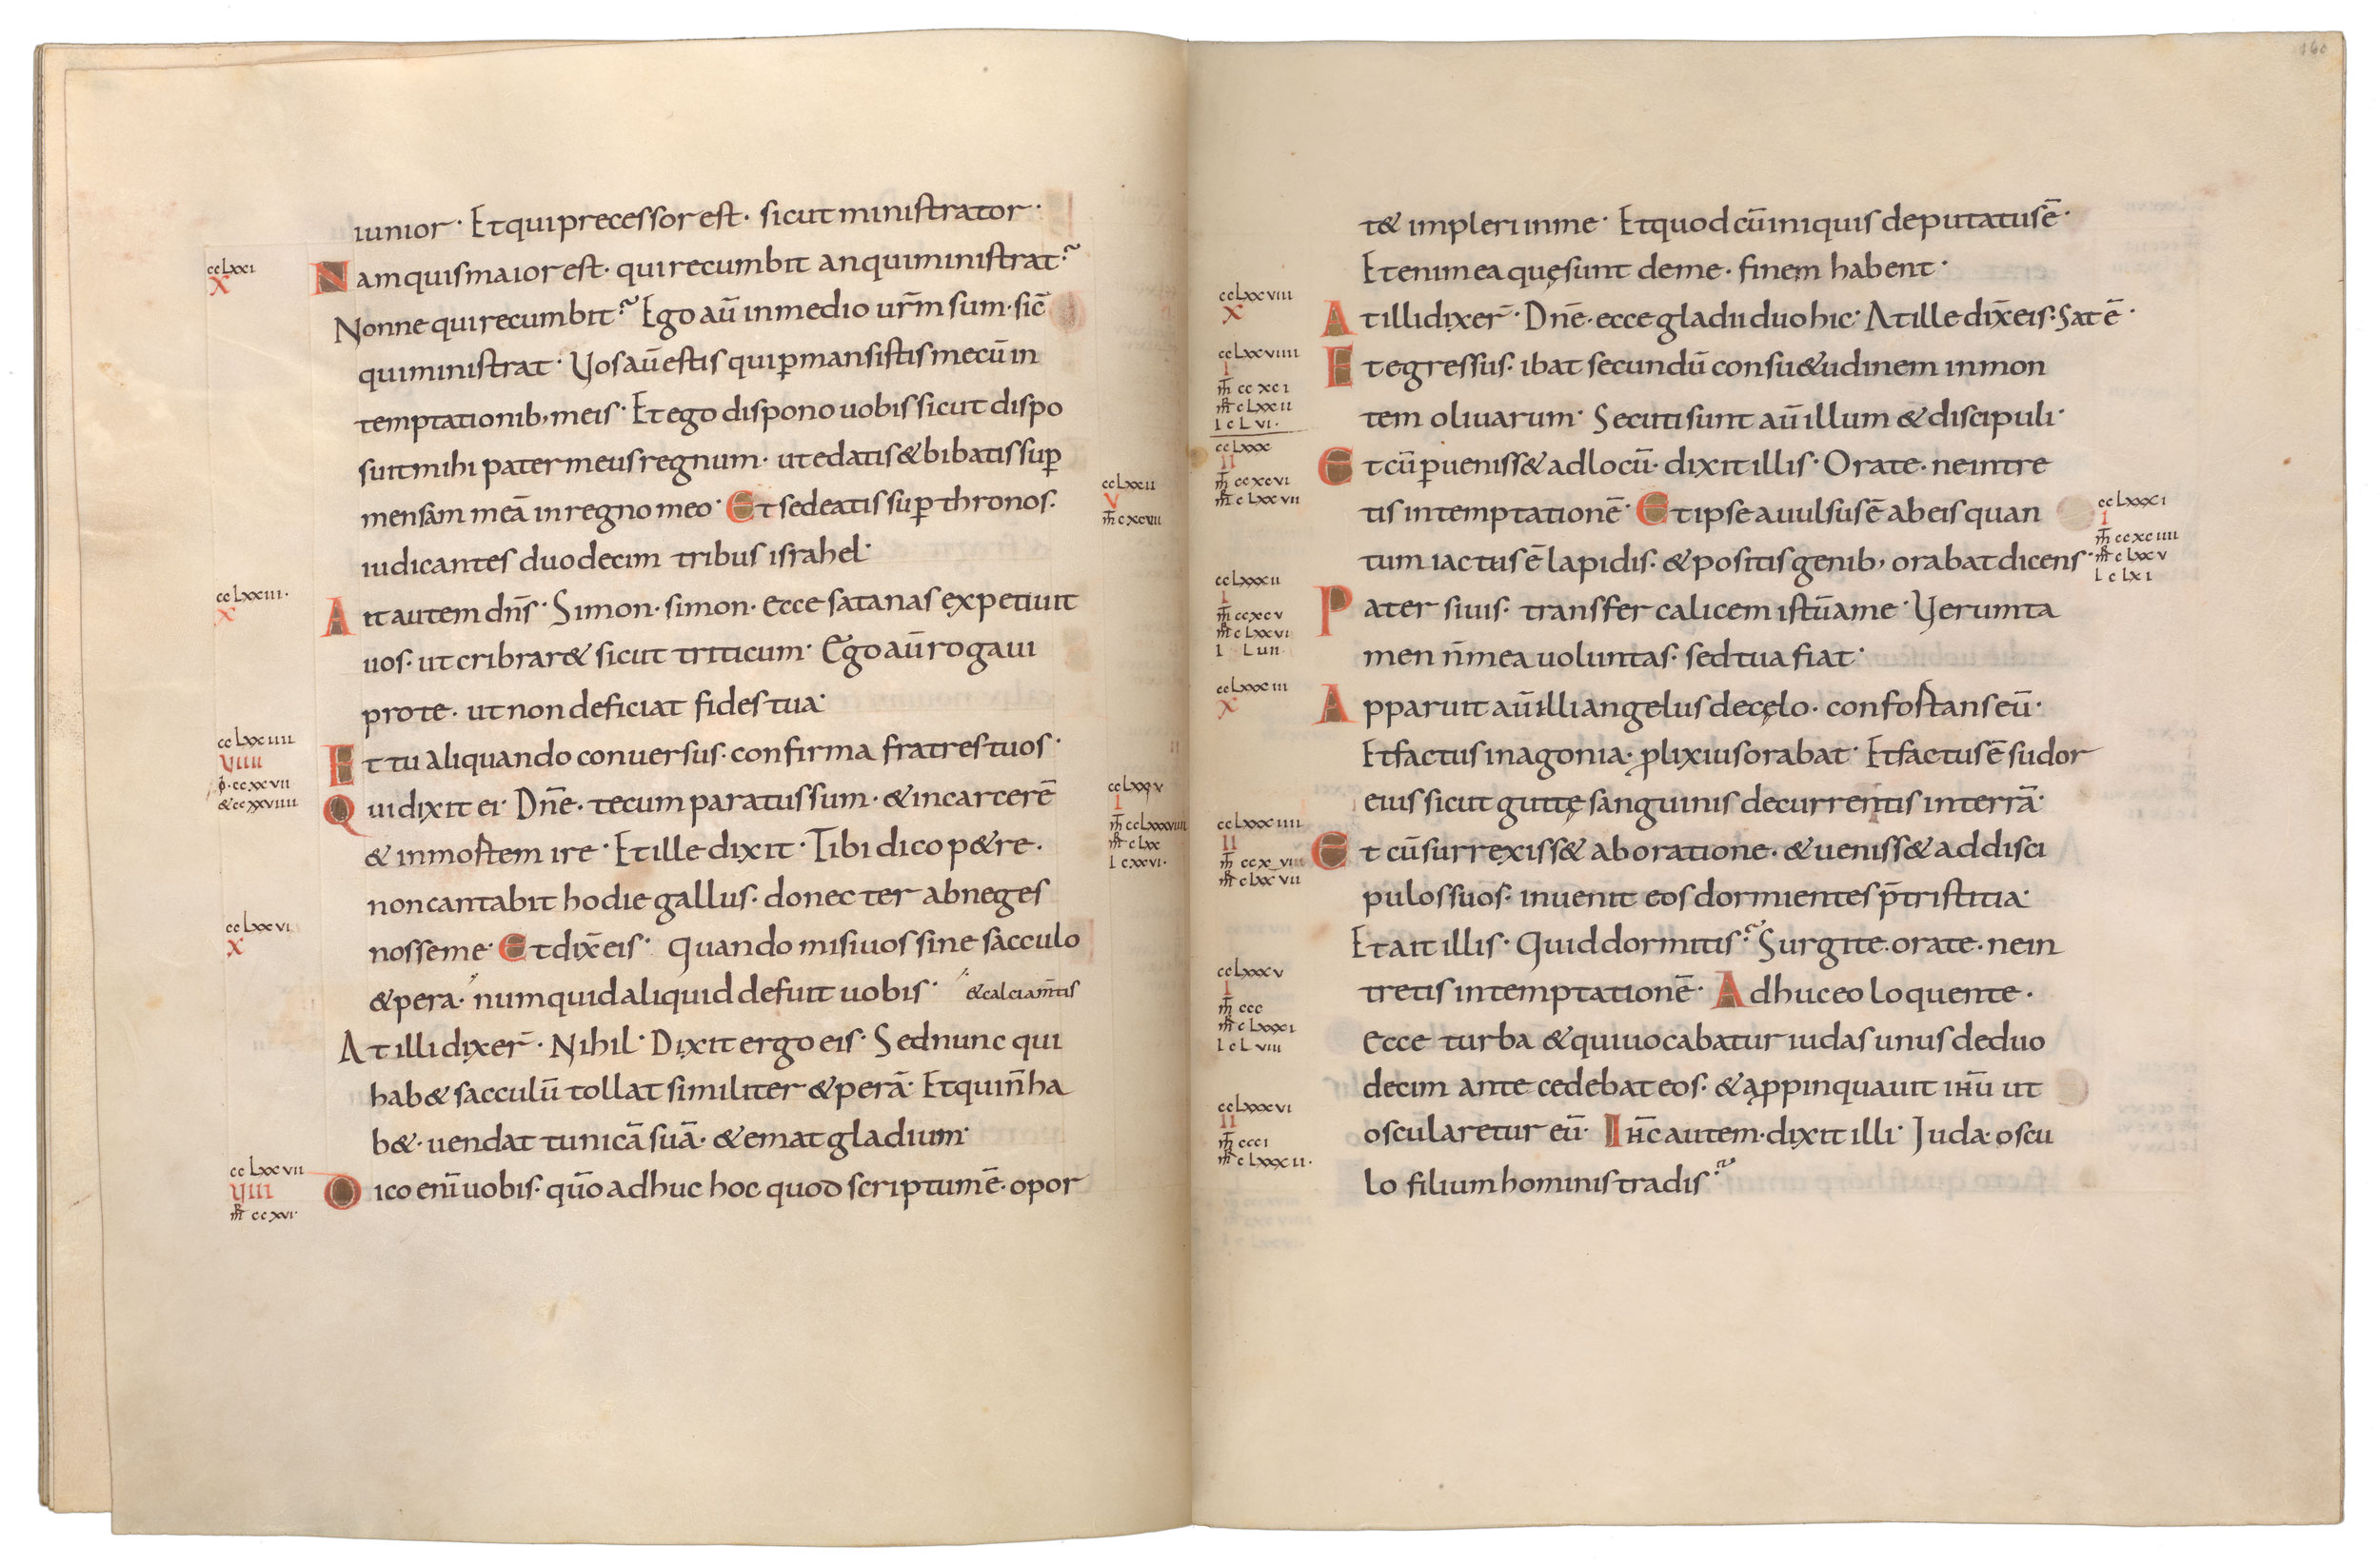 iunior· Et qui precessor est· sicut ministrator·
cclxxi
X
Nam quis maior est· qui recumbit an qui ministrat?
Nonne qui recumbit? Ego aū in medio ur̄m sum· sic̄
qui ministrat· Vos aū estis qui ꝑmansistis mecū in
temptationib; meis· Et ego dispono uobis sicut dispo
suit mihi pater meus regnum· ut edatis & bibatis suꝑ
mensam meā in regno meo· Et sedeatis suꝑ thronos·
cclxxii
V
m̄ cxcvii
iudicantes duodecim tribus israhel·
cclxxiii·
X
Ait autem dn̄s· Simon· simon· ecce satanas expetiuit
uos· ut cribrar& sicut triticum· Ego aū rogaui
pro te· ut non deficiat fides tua·
cclxxiiii
VIIII
&ccxxviiii
Et tu aliquando conuersus· confirma fratres tuos·
Qui dixit ei· Dn̄e· tecum paratus sum· & in carcerē
cclxxv
I
m̄ cclxxxviiii
mr̄ clxx
l cxxvi·
& in mortem ire· Et ille dixit· Tibi dico p&re·
non cantabit hodie gallus· donec ter abneges
cclxxvi
X
nosse me· Et dix̄ eis· Quando misi uos sine sacculo
& pera· numquid aliquid defuit uobis· & calciam̄tis
At illi dixer̄· Nihil· Dixit ergo eis· Sed nunc qui
hab& sacculū tollat similiter & perā· Et qui n̄ ha
b&· uendat tunicā suā· & emat gladium·
cclxxvii
VIII
mr̄ ccxvi·
Dico enī uobis· qūo adhuc hoc quod scriptum ē· opor
160
t& impleri in me· Et quod cū iniquis deputatus ē·
Etenim ea quę sunt de me· finem habent·
cclxxviii
X
At illi dixer̄· Dn̄e· ecce gladii duo hic· At ille dix̄ eis· Sat ē·
cclxxviiii
I
m̄ ccxci
mr̄ clxxii
l clvi·
Et egressus· ibat secundū consu&udinem in mon
tem oliuarum· Secuti sunt aū illum & discipuli·
cclxxx
II
m̄ ccxcvi
mr̄ clxxvii
Et cū ꝑueniss& ad locū· dixit illis· Orate· ne intre
tis in temptationē· Et ipse auulsus ē ab eis quan
cclxxxi
I
m̄ ccxciiii
mr̄ clxxv
l clxi
tum iactus ē lapidis· & positis genib; orabat dicens·
cclxxxii
I
m̄ ccxcv
mr̄ clxxvi
Pater si uis· transfer calicem istū a me· Verumta
men n̄ mea uoluntas· sed tua fiat·
cclxxxiii
X
Apparuit aū illi angelus de cęlo· confortans eū·
Et factus in agonia· ꝓlixius orabat· Et factus ē sudor
eius sicut guttę sanguinis decurrentis in terrā·
cclxxxiiii
II
mr̄ clxxvii
Et cū surrexiss& ab oratione· & ueniss& ad disci
pulos suos· inuenit eos dormientes p̄ tristitia·
Et ait illis· Quid dormitis? Surgite· orate· ne in
cclxxxv
I
m̄ ccc
mr̄ clxxxi
l clviii
tretis in temptationē· Adhuc eo loquente·
ecce turba & qui uocabatur iudas unus de duo
decim antecedebat eos· & aꝓpinquauit ihū ut
cclxxxvi
II
m̄ ccci
mr̄ clxxxii·
oscularetur eū· Ihc̄ autem· dixit illi· Juda· oscu
lo filium hominis tradis?